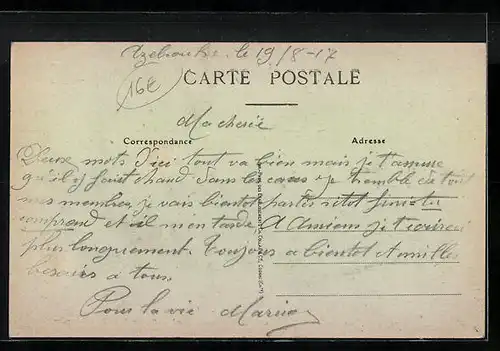 le 19/8-17
16E
CARTE POSTALE
Ma cherie
Correspondance
Adresse
Deux mots D'ici tout va bien mais je t'assure
qu'il y fait chaud dans les caves je tremble de tout
mes membres je vais bientot partes sitot fini tu
comprend et il m'en tarde A Amiens je t'ecrirai
plus longuement. Toujours a bientot et milles
besoirs a tous
Pour la vie Marius